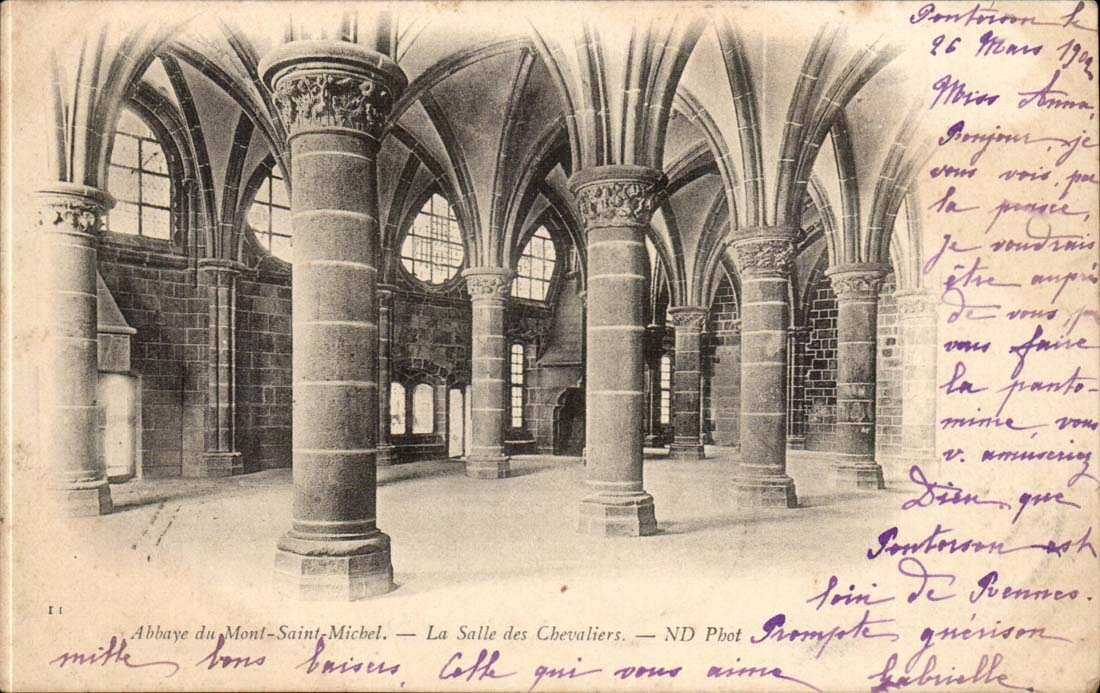 Pontorson le
26 Mars 190
Miss Anna,
Bonjour, je
vous vois, par
la pensée,
Je voudrais
être auprès
de vous, pr
vous faire
la panto-
mime, vous
v. amuseriez
Dieu que
Pontorson est
loin de Rennes.
11
Abbaye du Mont-Saint-Michel. — La Salle des Chevaliers. — ND Phot
Prompte guérison
mille bons baisers, Celle qui vous aime
Gabrielle